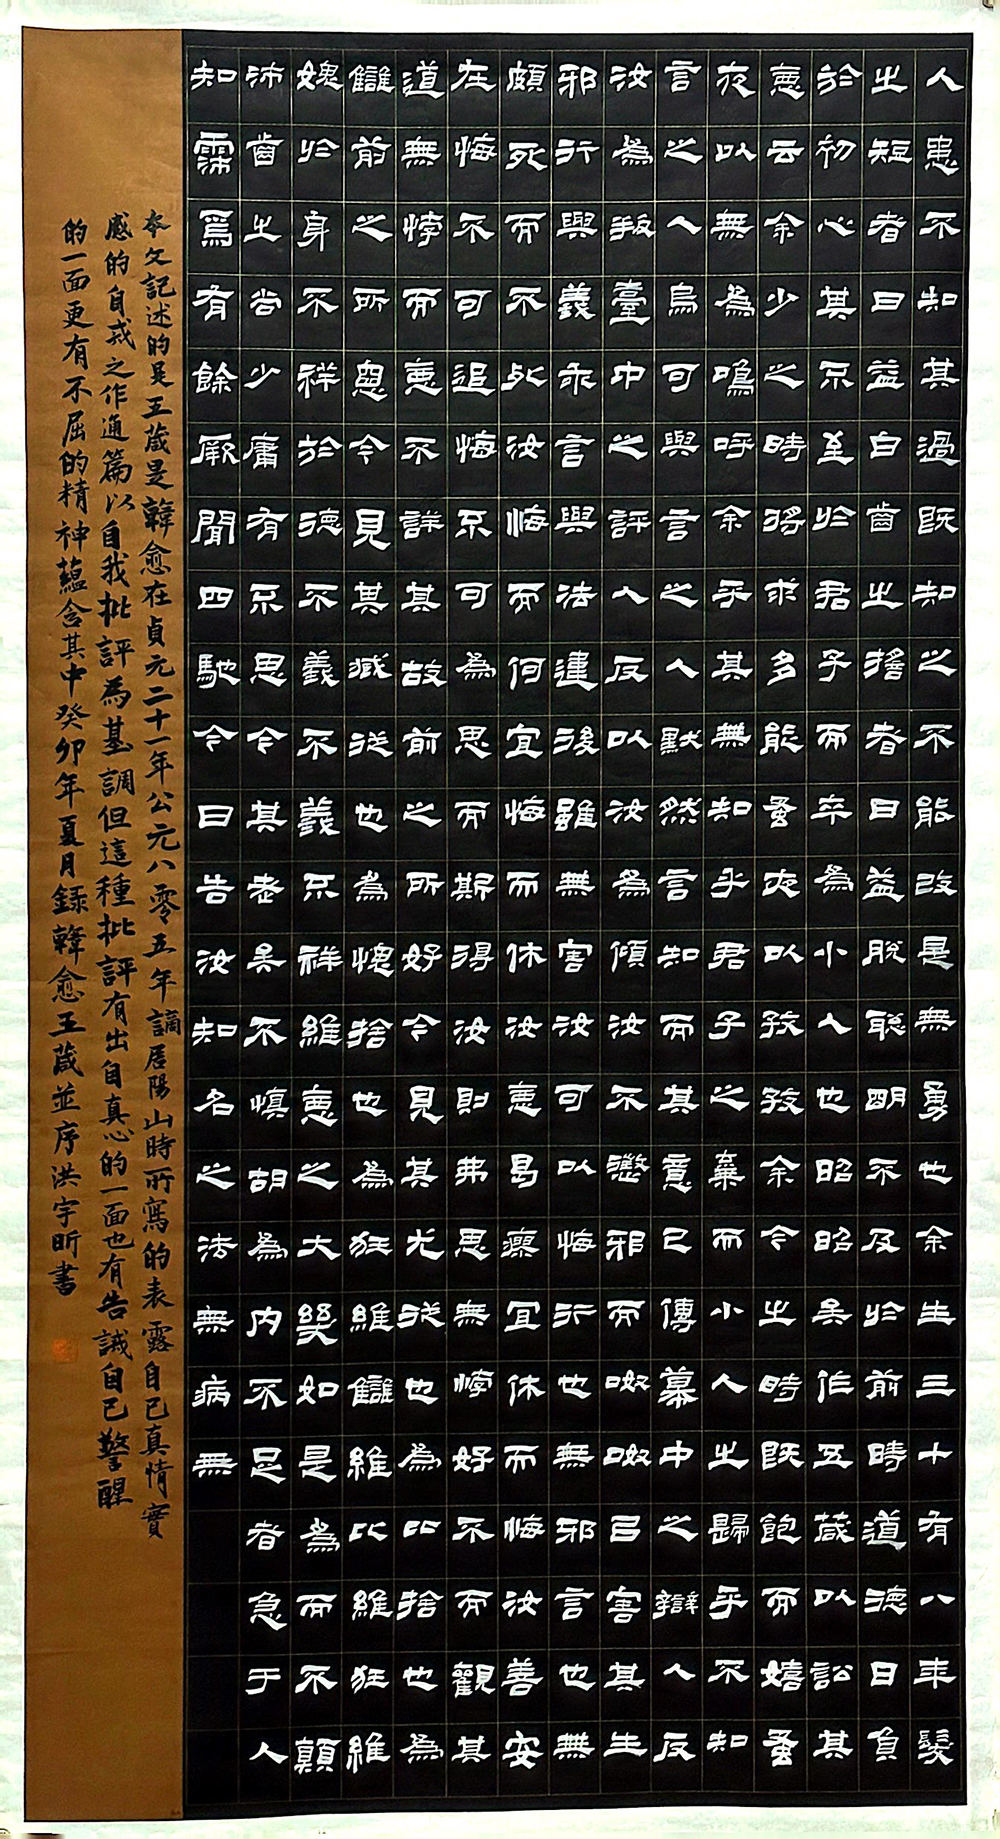 人患不知其過既知之不能改是無勇也余生三十有八年髮
之短者日益白齒之搖者日益脫聰明不及於前時道德日負
於初心其不至於君子而卒為小人也昭昭矣作五箴以訟其
惡云余少之時將求多能蚤夜以孜孜余今之時既飽而嬉蚤
夜以無為嗚呼余乎其無知乎君子之棄而小人之歸乎不知
言之人烏可與言之人默然言知而其意已傳幕中之辯人反
汝為叛臺中之評人反以汝為傾汝不懲邪而呶呶㠯害其生
邪行與義乖言與法違後雖無害汝可以悔行也無邪言也無
頗死而不死汝悔而何宜悔而休汝惡曷瘳宜休而悔汝善安
在悔不可追悔不可為思而斯得汝則弗思無悖好不而觀其
道無悖而惡不詳其故前之所好今見其尤從也為比捨也為
讎前之所惡今見其臧從也為愧捨也為狂維讎維比維狂維
愧於身不祥於德不義不義不祥維惡之大幾如是為而不顛
沛齒之尚少庸有不思今其老矣不慎胡為內不足者急于人
知霈焉有餘厥聞四馳今日告汝知名之法無病無
本文記述的是五箴是韓愈在貞元二十一年公元八零五年謫居陽山時所寫的表露自己真情實
感的自戒之作通篇以自我批評為基調但這種批評有出自真心的一面也有告誡自己警醒
的一面更有不屈的精神蘊含其中癸卯年夏月録韓愈五箴並序洪宇昕書